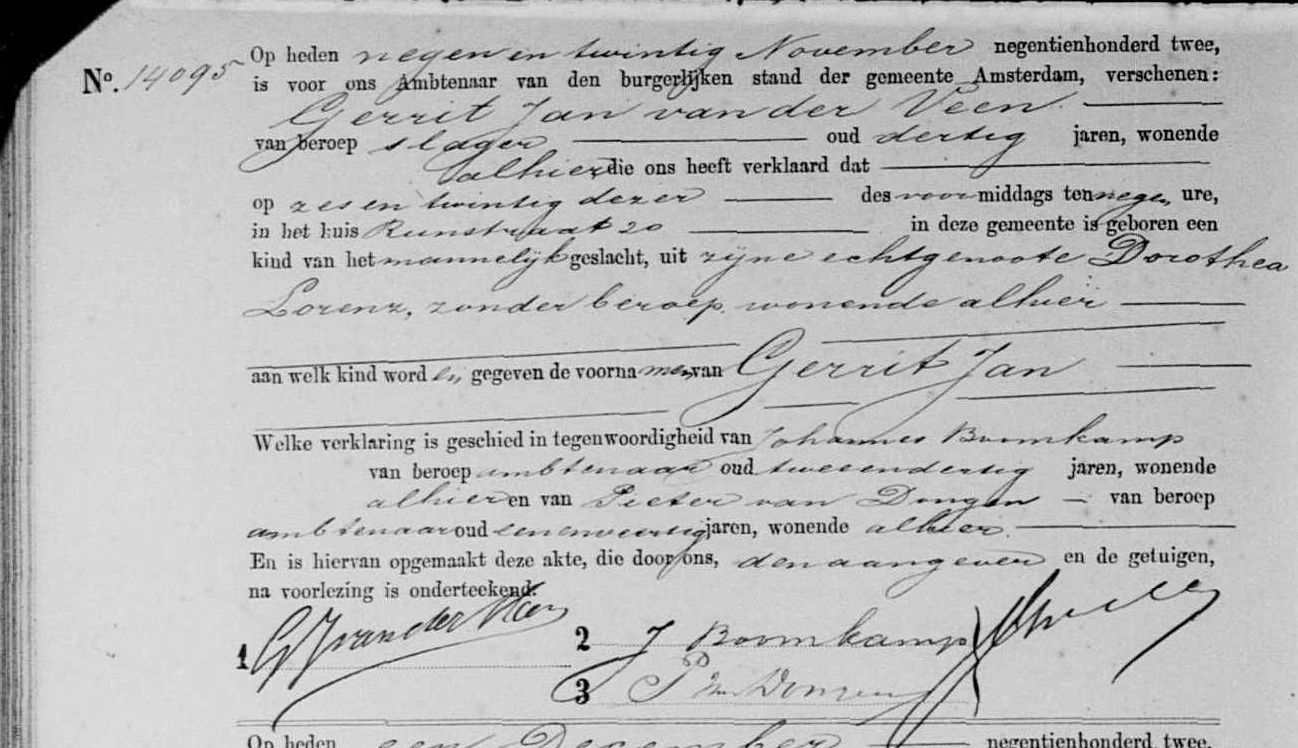 Op heden negen en twintig November negentienhonderd twee,
No. 14095 is voor ons Ambtenaar van den burgerlijken stand der gemeente Amsterdam, verschenen:
Gerrit Jan van der Veen
van beroep slager oud dertig jaren, wonende
alhier die ons heeft verklaard dat
op zes en twintig dezer des voormiddags ten negen ure,
in het huis Runstraat 20 in deze gemeente is geboren een
kind van het mannelijk geslacht, uit zijne echtgenoote Dorothea
Lorenz, zonder beroep, wonende alhier
aan welk kind word en gegeven de voornamen van Gerrit Jan
Welke verklaring is geschied in tegenwoordigheid van Johannes Boomkamp
van beroep ambtenaar oud tweeendertig jaren, wonende
alhier en van Pieter van Dongen van beroep
ambtenaar oud eenenveertig jaren, wonende alhier.
En is hiervan opgemaakt deze akte, die door ons, den aangever en de getuigen,
na voorlezing is onderteekend.
1 GJ van der Veen 2 J Boomkamp
3 P van Dongen
Op heden een December negentienhonderd twee,